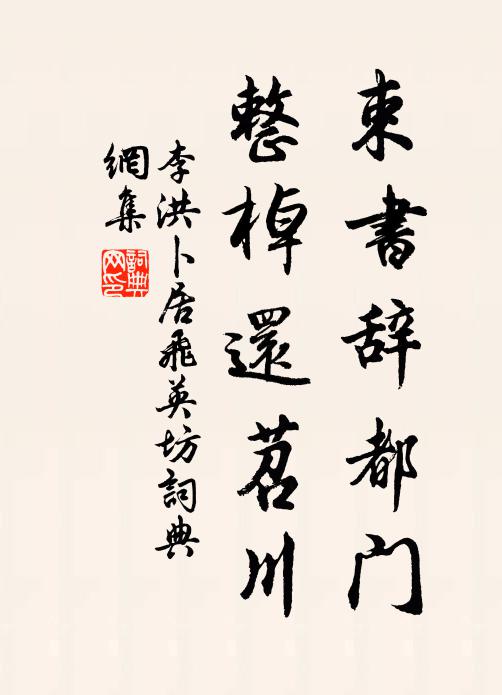 束書辞都門
整棹還苕川
李洪卜居飛英坊詞典
網集
詞典
网印